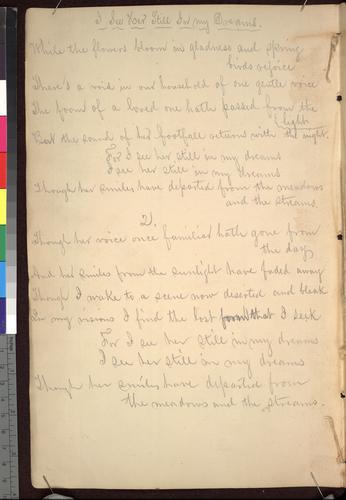 I See Her Still In my Dreams.
While the flowers bloom in gladness and spring
birds rejoice
There's a void in our household of one gentle voice
The form of a loved one hath passed from the
light
But the sound of her footfall returns with the night.
For I see her still in my dreams
I see her still in my dreams
Though her smiles have departed from the meadows
and the streams.
2.
Though her voice once familiar hath gone from
the day
And her smiles from the sunlight have faded away
Though I wake to a scene now deserted and bleak
In my visions I find the lost form that I seek
For I see her still in my dreams
I see her still in my dreams
Though her smiles have departed from
the meadows and the streams.